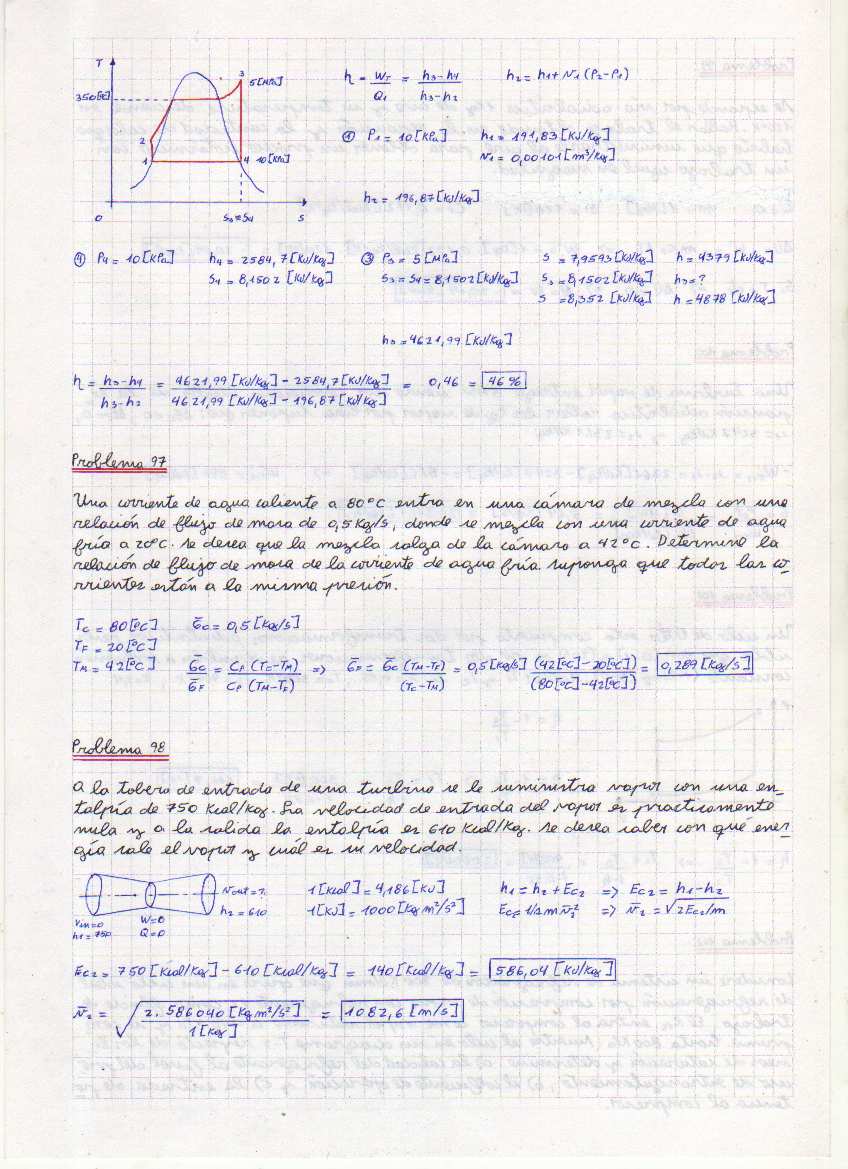 T
3
5[MPa]
350[ºC]
2
1
4 10[KPa]
0
S3=S4
S
η = WT/Q1 = h3-h4/h3-h2
h2=h1+v1(P2-P1)
① P1=10[KPa] h1=191,83[KJ/Kg]
v1=0,00101[m³/Kg]
h2=196,87[KJ/Kg]
④ P4=10[KPa] h4=2584,7[KJ/Kg]
S4=8,1502[KJ/Kg]
③ P3=5[MPa] S=7,9593[KJ/Kg] h=4379[KJ/Kg]
S3=S4=8,1502[KJ/Kg] S3=8,1502[KJ/Kg] h3=?
S=8,352[KJ/Kg] h=4878[KJ/Kg]
h3=4621,99[KJ/Kg]
η = h3-h4/h3-h2 = 4621,99[KJ/Kg]-2584,7[KJ/Kg]/4621,99[KJ/Kg]-196,87[KJ/Kg] = 0,46 = 46%
Problema 97
Una corriente de agua caliente a 80ºC entra en una cámara de mezcla con una
relación de flujo de masa de 0,5Kg/s, donde se mezcla con una corriente de agua
fría a 20ºC. Se desea que la mezcla salga de la cámara a 42ºC. Determine la
relación de flujo de masa de la corriente de agua fría. Suponga que todas las co-
rrientes están a la misma presión.
TC=80[ºC] GC=0,5[Kg/s]
TF=20[ºC]
TM=42[ºC] GC/GF = CP(TC-TM)/CP(TM-TF) => GF=GC(TM-TF)/(TC-TM)=0,5[Kg/s](42[ºC]-20[ºC])/(80[ºC]-42[ºC])=0,289[Kg/s]
Problema 98
A la tobera de entrada de una turbina se le suministra vapor con una en-
talpía de 750 Kcal/Kg. La velocidad de entrada del vapor es practicamente
nula y a la salida la entalpía es 610 Kcal/Kg. Se desea saber con qué ener-
gía sale el vapor y cuál es su velocidad.
vout=? 1[Kcal]=4,186[KJ] h1=h2+Ec2 => Ec2=h1-h2
h2=610 1[KJ]=1000[Kg m²/s²] Ec2=1/2mv2² => v2=√2Ec2/m
vin=0
h1=750
W=0
Q=0
Ec2=750[Kcal/Kg]-610[Kcal/Kg]=140[Kcal/Kg]=586,04[KJ/Kg]
v2=√2.586040[Kg m²/s²]/1[Kg] = 1082,6[m/s]